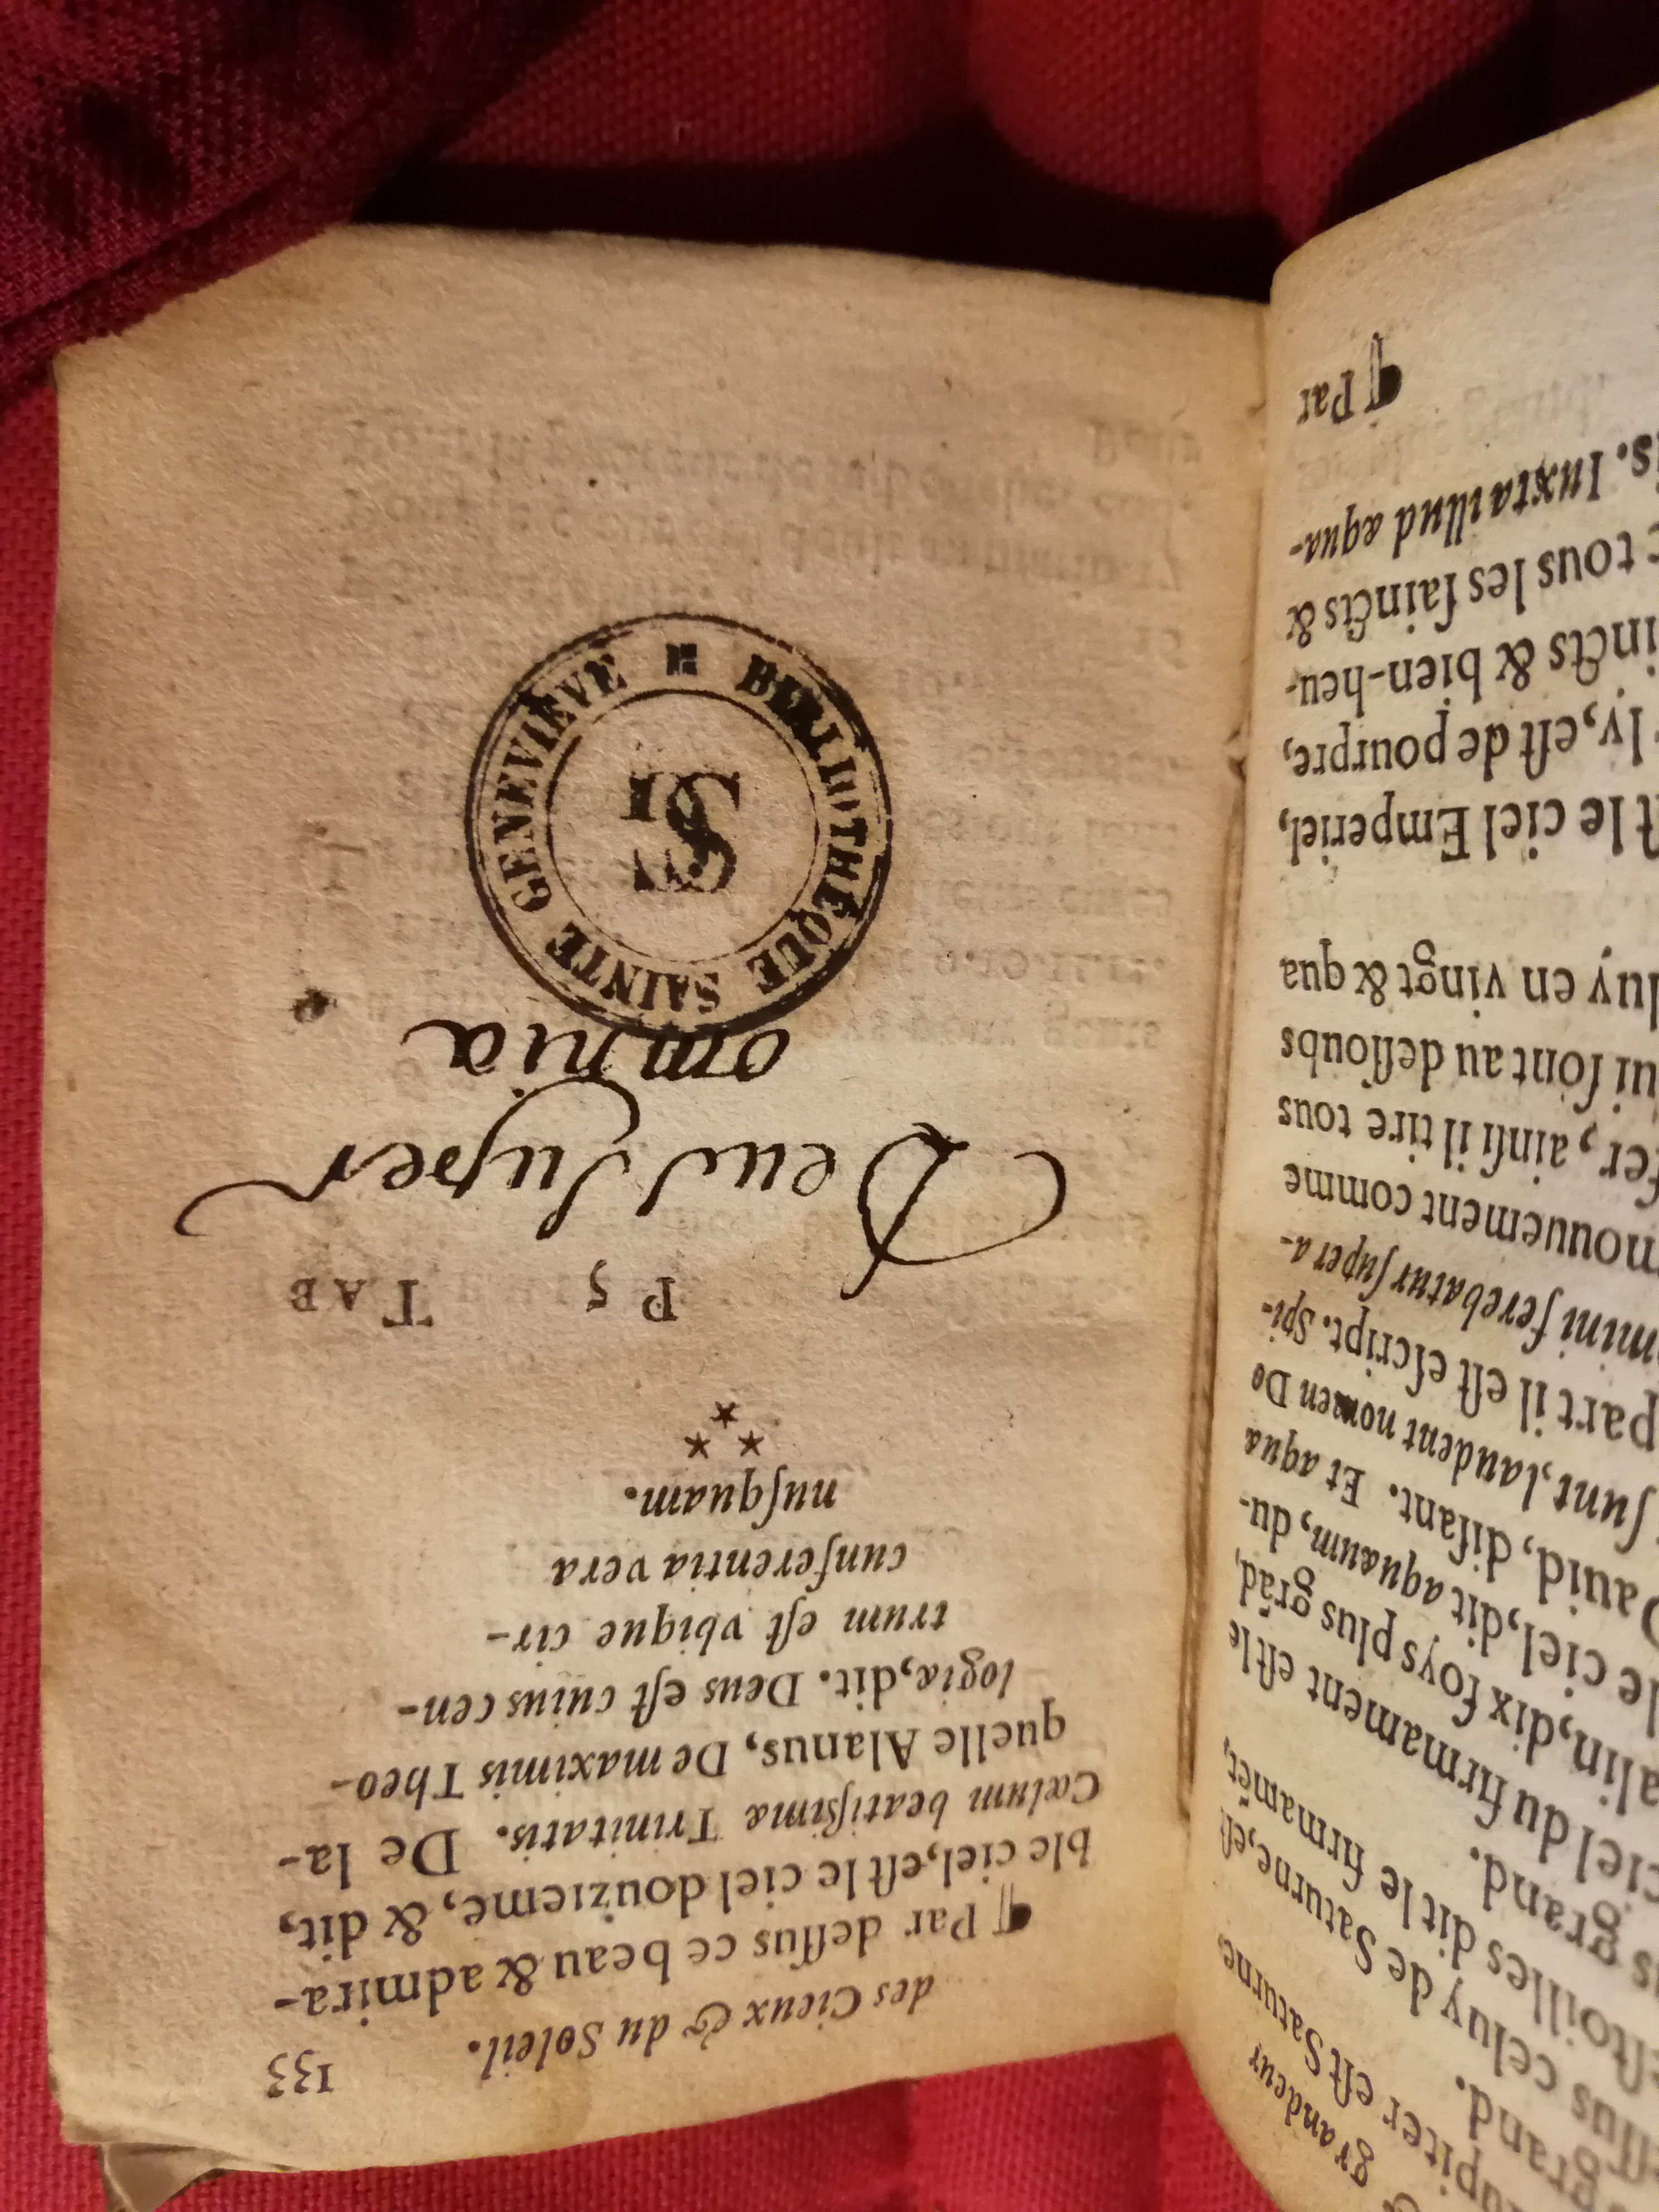 grandeur
upiter eſt Saturne
grand.
eſſus celuy de Saturne, eſt
eſtoilles dit le firmamēt,
s grand.
ciel du firmament eſt le
alin, dix foys plus grād,
le ciel, dit aquaum, du-
Dauid, diſant. Et aqua
ſunt, laudent nomen Do
part il eſt eſcript. Spi-
mini ferebatur ſuper a-
mouuement comme
fer, ainſi il tire tous
ui ſont au deſſoubs
luy en vingt & qua
ſt le ciel Emperiel,
ly, eſt de pourpre,
incts & bien-heu-
t tous les ſaincts &
is. Iuxta illud aqua-
¶ Par
des Cieux & du Soleil. 133
¶ Par deſſus ce beau & admira-
ble ciel, eſt le ciel douzieme, & dit,
Cælum beatiſſimæ Trinitatis. De la-
quelle Alanus, De maximis Theo-
logiæ, dit. Deus eſt cuius cen-
trum eſt vbique cir-
cunferentia vera
nuſquam.
P 5 TAB
Deus super
omnia
BIBLIOTHÈQUE SAINTE GENEVIÈVE